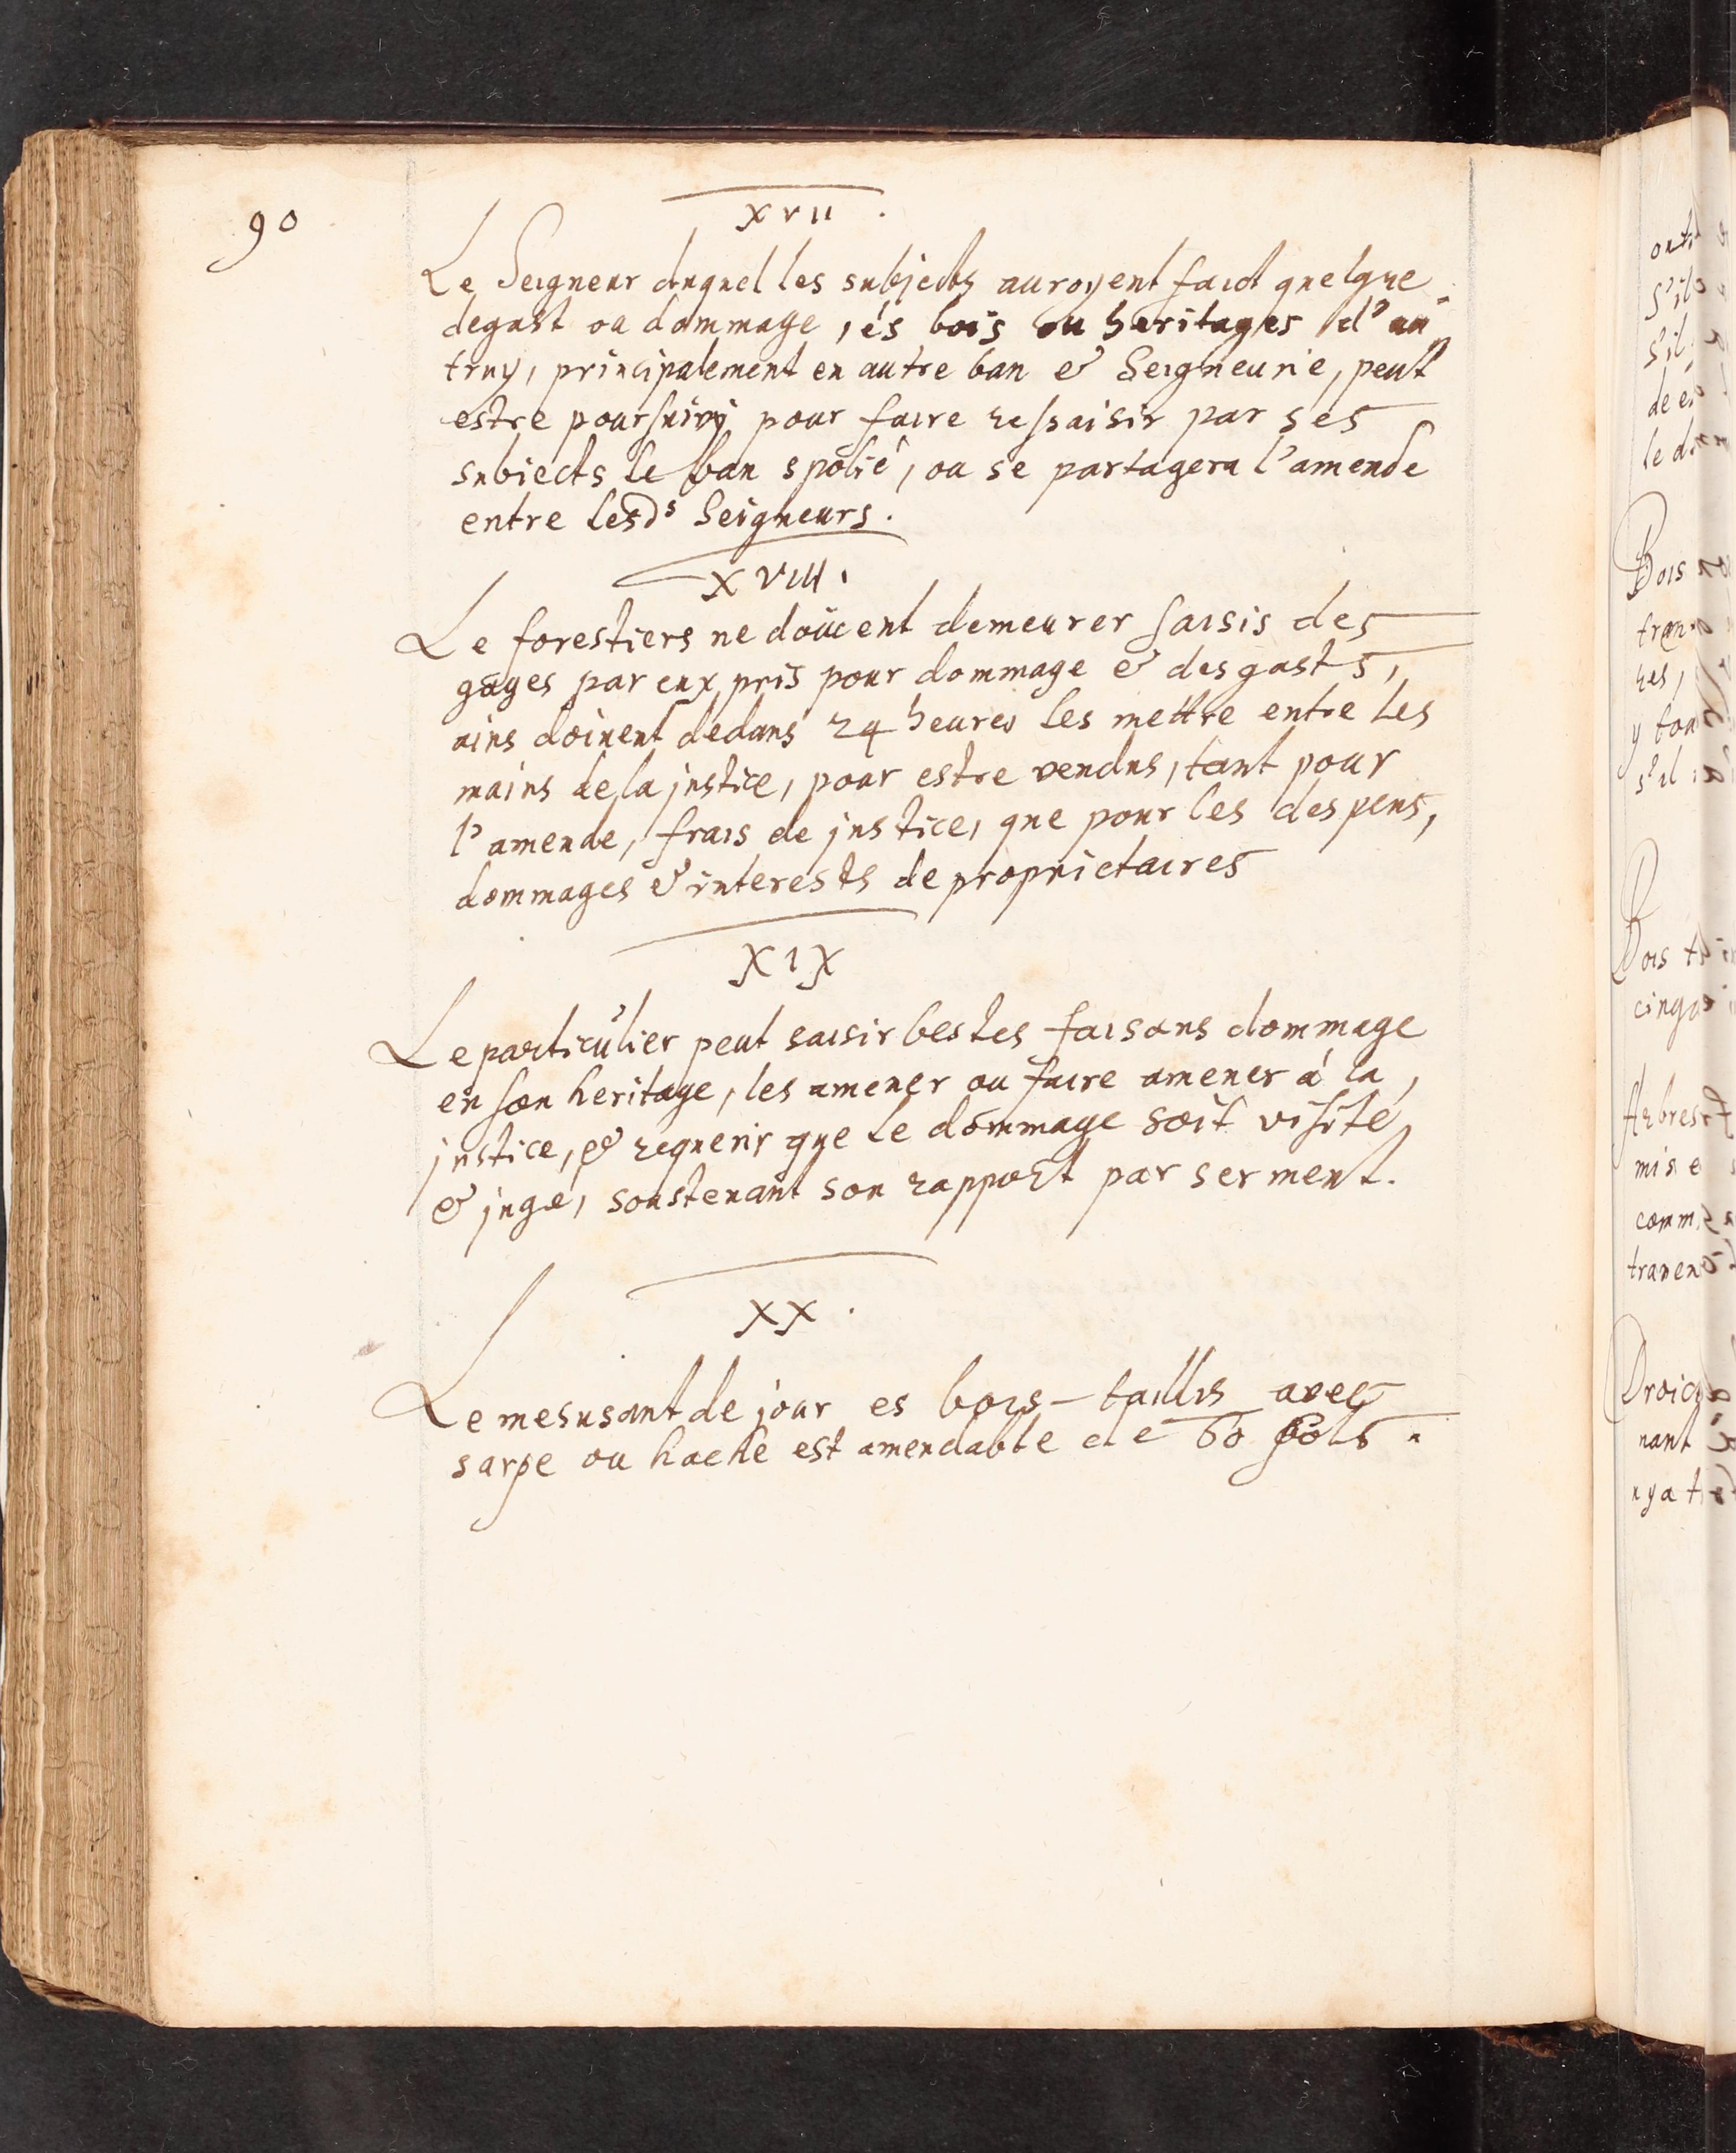 90
XVII.
Le Seigneur duquel les subjects auroyent faict quelque
degast ou dommage, és bois ou heritages d'au
truy, principalement en autre ban & Seigneurie, peut
estre poursuivy pour faire ressaisir par ses
subiects le ban spolié, ou se partagera l'amende
entre lesds Seigneurs.
XVIII.
Le forestiers ne doivent demeurer saisis des
gages par eux pris pour dommage & desgasts,
ains doivent dedans 24 heures les mettre entre les
mains de la justice, pour estre vendus, tant pour
l'amende, frais de justice, que pour les despens,
dommages & interests de proprietaires
XIX
Le particulier peut saisir bestes faisans dommage
en son heritage, les amener ou faire amener à la
justice, & requerir que le dommage soit visité
& jugé, soustenant son rapport par serment.
XX.
Le mesusant de jour es bois-taillis avec
sarpe ou hache est amendable de 60 sols.
s'il
s'il
de
le
Bois
y
s'il
Bois
Arbres
mis e
comm
Droict
nant